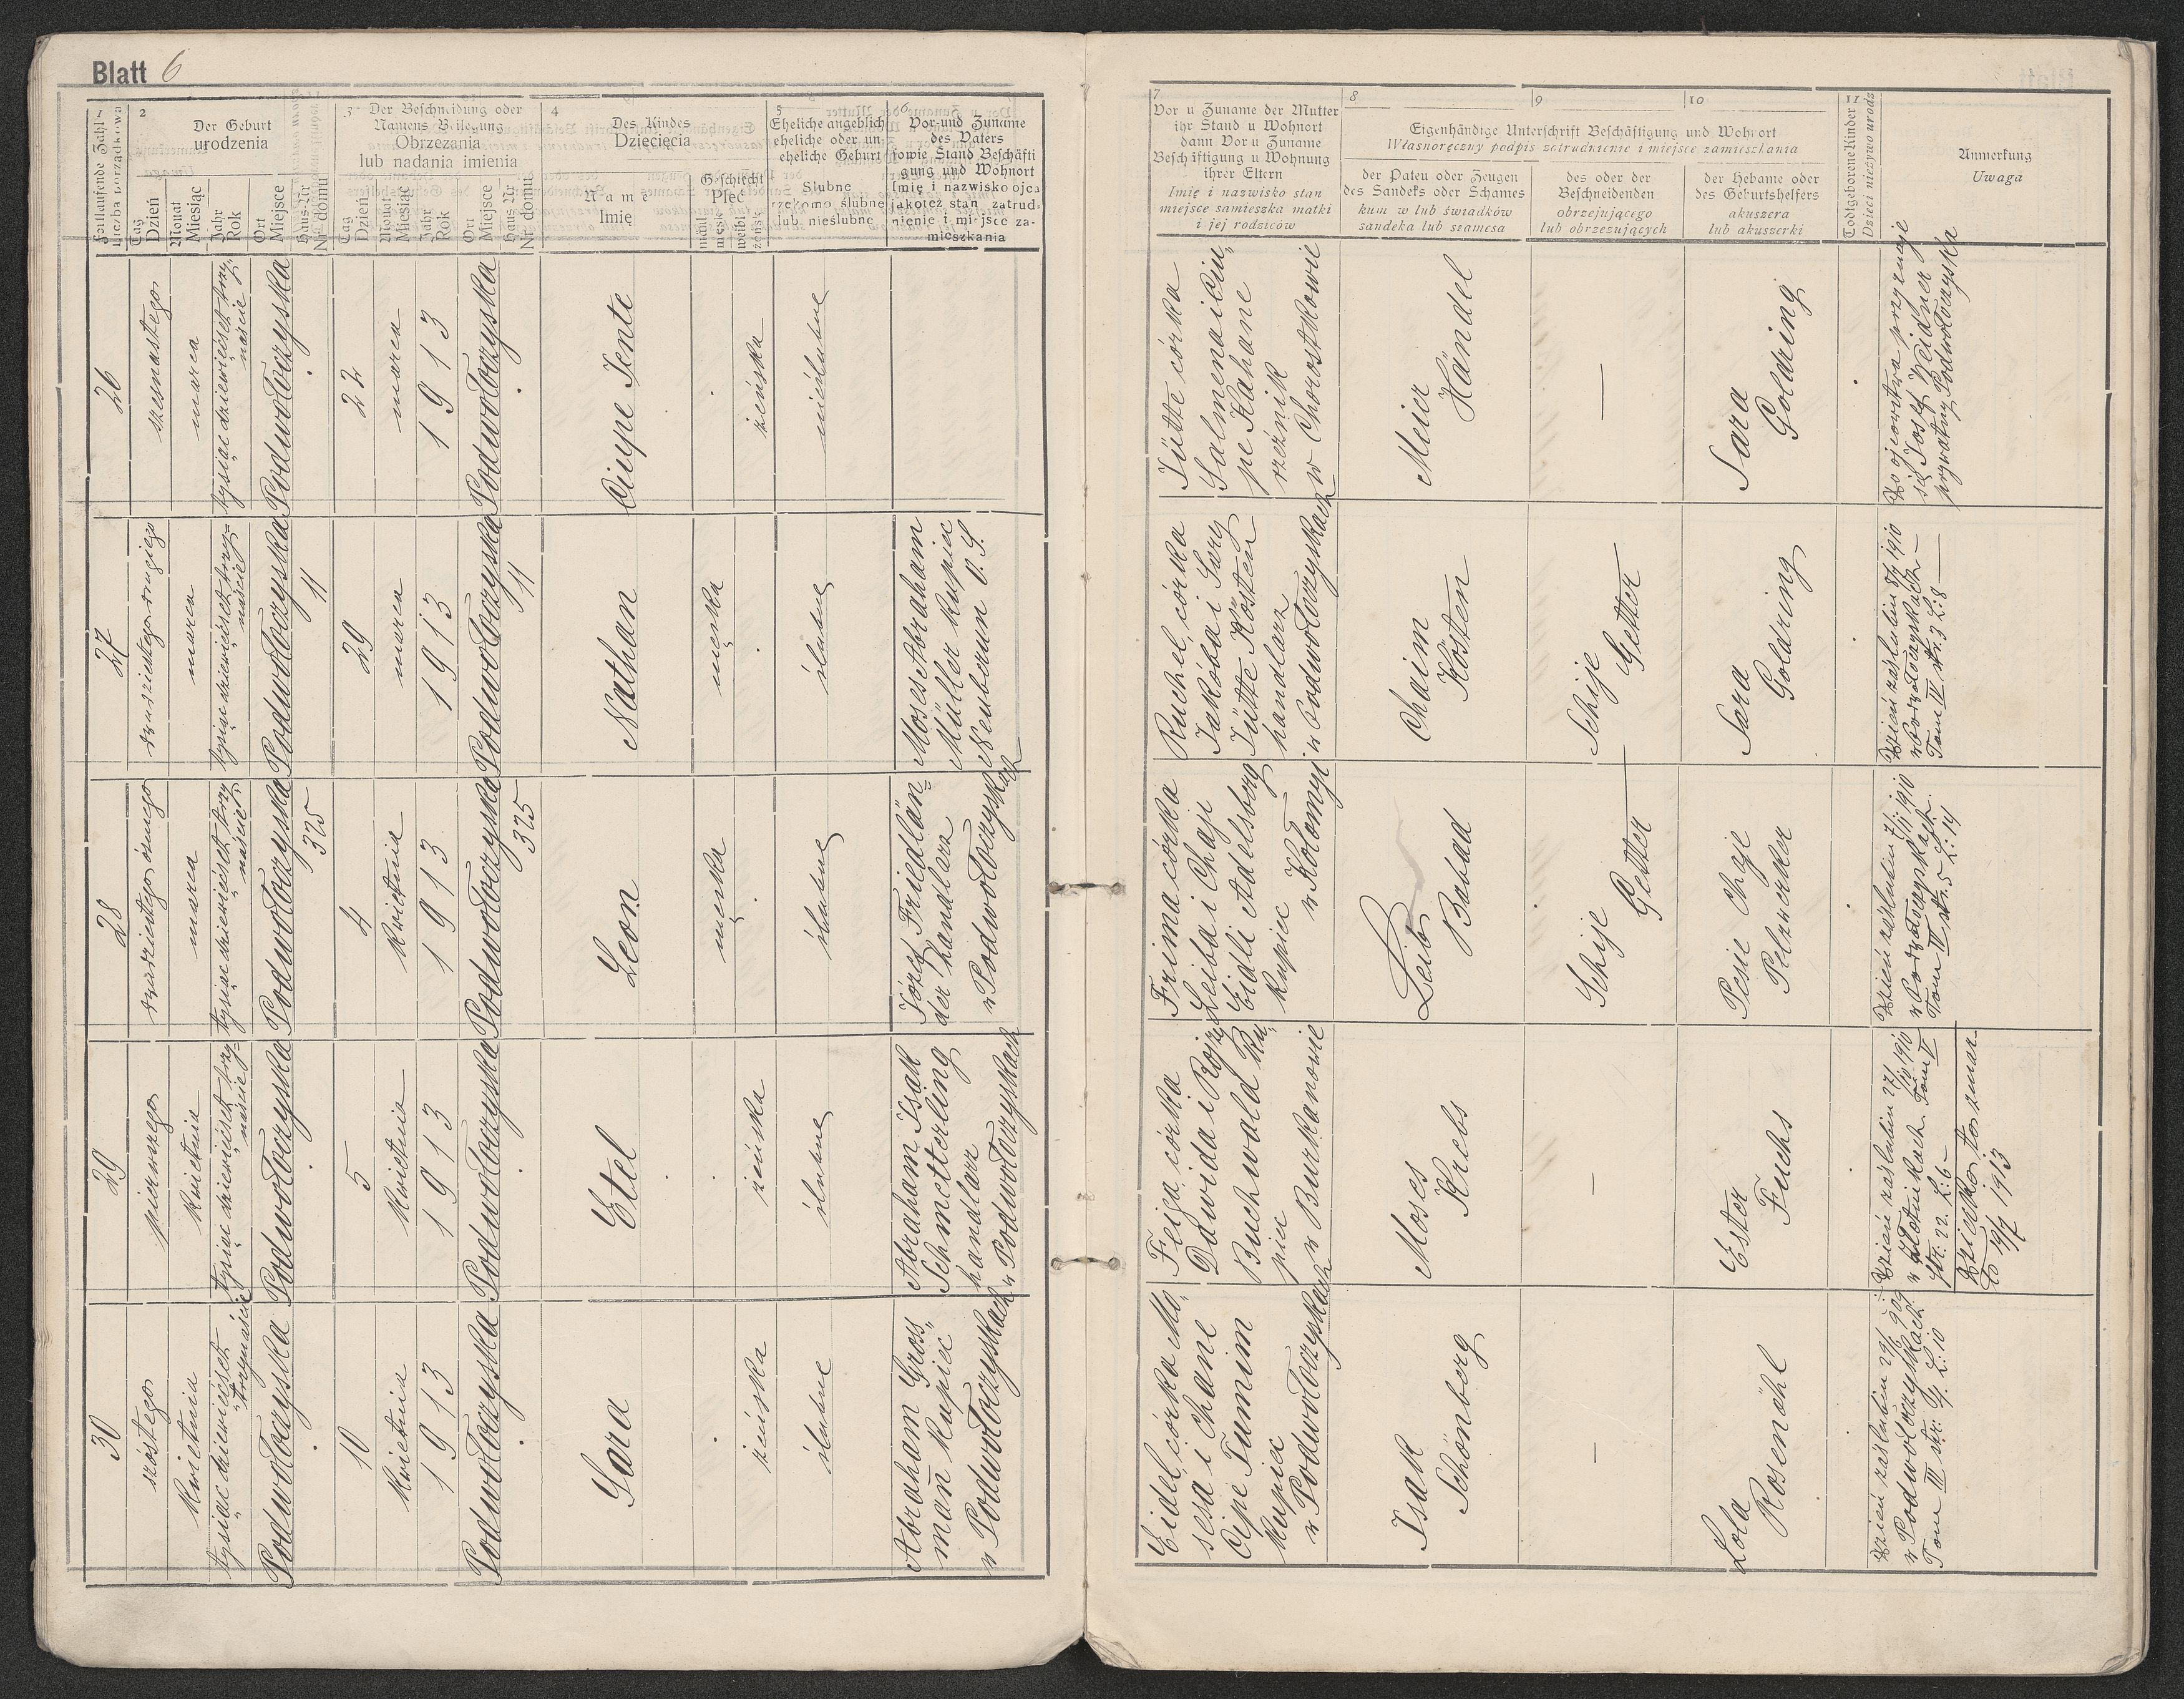 Blatt 6
1
Fortlaufende Zahl
Liczba porządkowa
2
Der Geburt
urodzenia
Tag
Dzień
Monat
Miesiąc
Jahr
Rok
Ort
Miejsce
Haus-Nr
Nr domu
3
Der Beschneidung oder
Namens Beilegung
Obrzezania
lub nadania imienia
Tag
Dzień
Monat
Miesiąc
Jahr
Rok
Ort
Miejsce
Haus-Nr
Nr domu
4
Des Kindes
Dziecięcia
Name
Imię
Geschlecht
Płeć
männl
męsk
weibl
żeńsk
5
Eheliche angeblich
eheliche oder un-
eheliche Geburt
Ślubne
rzekomo ślubne
lub nieślubne
6
Vor-und Zuname
des Vaters
sowie Stand Beschäfti
gung und Wohnort
Imię i nazwisko ojca
jakoteż stan zatrud-
nienie i miejsce za-
mieszkania
7
Vor u Zuname der Mutter
ihr Stand u Wohnort
dann Vor u Zuname
Beschäftigung u Wohnung
ihrer Eltern
Imię i nazwisko stan
miejsce samieszka matki
i jej rodziców
Eigenhändige Unterschrift Beschäftigung und Wohnort
Własnoręczny podpis zatrudnienie i miejsce zamieszkania
8
der Paten oder Zeugen
des Sandeks oder Schames
kum w lub świadków
sandeka lub szamesa
9
des oder der
Beschneidenden
obrzejującego
lub obrzezujących
10
der Hebame oder
des Geburtshelfers
akuszera
lub akuszerki
11
Todtgeborene Kinder
Dzieci nieżywo urodz
Anmerkung
Uwaga
26
szesnastego
marca
tysiąc dziewięćset trzy-
naście
Podwołoczyska
22
marca
1913
Podwołoczyska
Ciupe Jente
żeńska
nieślubne
Jütte córka
Salmena i Ciu„
pe Kahane
rzeźnik
w Chorostkowie
Meier
Händel
—
Sara
Goldring
Do ojcowstwa przyznaje
się Josef Weidner
prywatny Podwołoczyska
27
dwudziestego drugiego
marca
tysiąc dziewięćset trzy-
naście
Podwołoczyska
11
29
marca
1913
Podwołoczyska
11
Nathan
męska
ślubne
Moses Abraham
Müller kupiec
Neuberun O.S.
Ruchel córka
Jakóba i Sury
Jütte Kösten
handlarz
w Podwołoczyskach
Chaim
Kösten
Schije
Getter
Sara
Goldring
Dzień zaślubin 8/9 1910
w Podwołoczyskach —
Tom IV str. 3 L: 8 —
28
dwudziestego ósmego
marca
tysiąc dziewięćset trzy
naście
Podwołoczyska
325
4
kwietnia
1913
Podwołoczyska
325
Leon
męska
ślubne
Józef Friedlän-
der handlarz
w Podwołoczyskach
Frima córka
Leiba i Chaji
Eidli Adelsberg
kupiec
w Kołomyi
Leib
Babad
Schije
Getter
Pesie Chaje
Pelzwerker
Dzień zaślubin
w Podwołoczyskach
Tom IV str. 5 L: 14
29
pierwszego
kwietnia
tysiąc dziewięćset trzy
naście
Podwołoczyska
5
kwietnia
1913
Podwołoczyska
Etel
żeńska
ślubne
Abraham Isak
Schmetterling
handlarz
w Podwołoczyskach
Feiga córka
Dawida i Rojzy
Buchwald ku„
piec
w Burkanowie
Moses
Krebs
—
Ester
Fuchs
Dzień zaślubin 27/10 1910
w Złotnikach Tom V
str. 22. L: 6 —
Dziecko to zmar
ło 19/7 1913
30
szóstego
kwietnia
tysiąc dziewięćset
trzynaście
Podwołoczyska
10
kwietnia
1913
Podwołoczyska
Sara
żeńska
ślubne
Abraham Gross„
man kupiec
w Podwołoczyskach
Eidel córka Mo„
sesa i Chane
Cipe Tumim
kupiec
w Podwołoczyskach
Isak
Schönberg
—
Lola
Rosenöhl
Dzień zaślubin
w Podwołoczyskach
Tom III str. L: 10